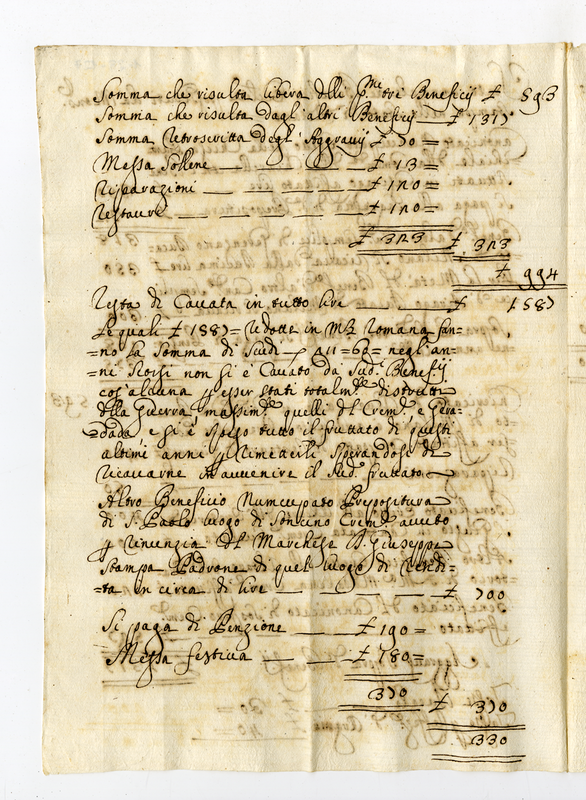 Somma che risulta libera delli p.mi tre Beneficij £ 593
Somma che risulta dagl'altri Beneficij — £ 1317
Somma retroscritta degl'Aggravij £ 70=
Messa Sollene — £ 13=
Riparazioni — £ 120=
Restaure — £ 120=
£ 323 £ 323
£ 994
Resta di Cavata in tutto lire — £ 1587
Le quali £ 1587= ridotte in Romana fan=
=no la Somma di Scudi = negl'an=
=ni scorsi non si è Cavato da Sud.i Beneficij
cos'alcuna p esser stati totalm.te distrutti
dlla Guerra massim.te quelli dl Crem.e e Gera=
=dada e si è speso tutto il fruttato di questi
altimi anni p sperandosi di
ricavarne in avvenire il Sud.o fruttato
Altro Beneficio Numcupato Prepositura
di S. Paolo luogo di Soncino Crem.e avuto
p rinunzia dl Marchese D. Giuseppe
Stampa Padrone di quel luogo di Rendi=
=ta in cerca di lire — £ 700
Si paga di Penzione — £ 190=
Messa festiva — £ 180=
370 £ 370
330